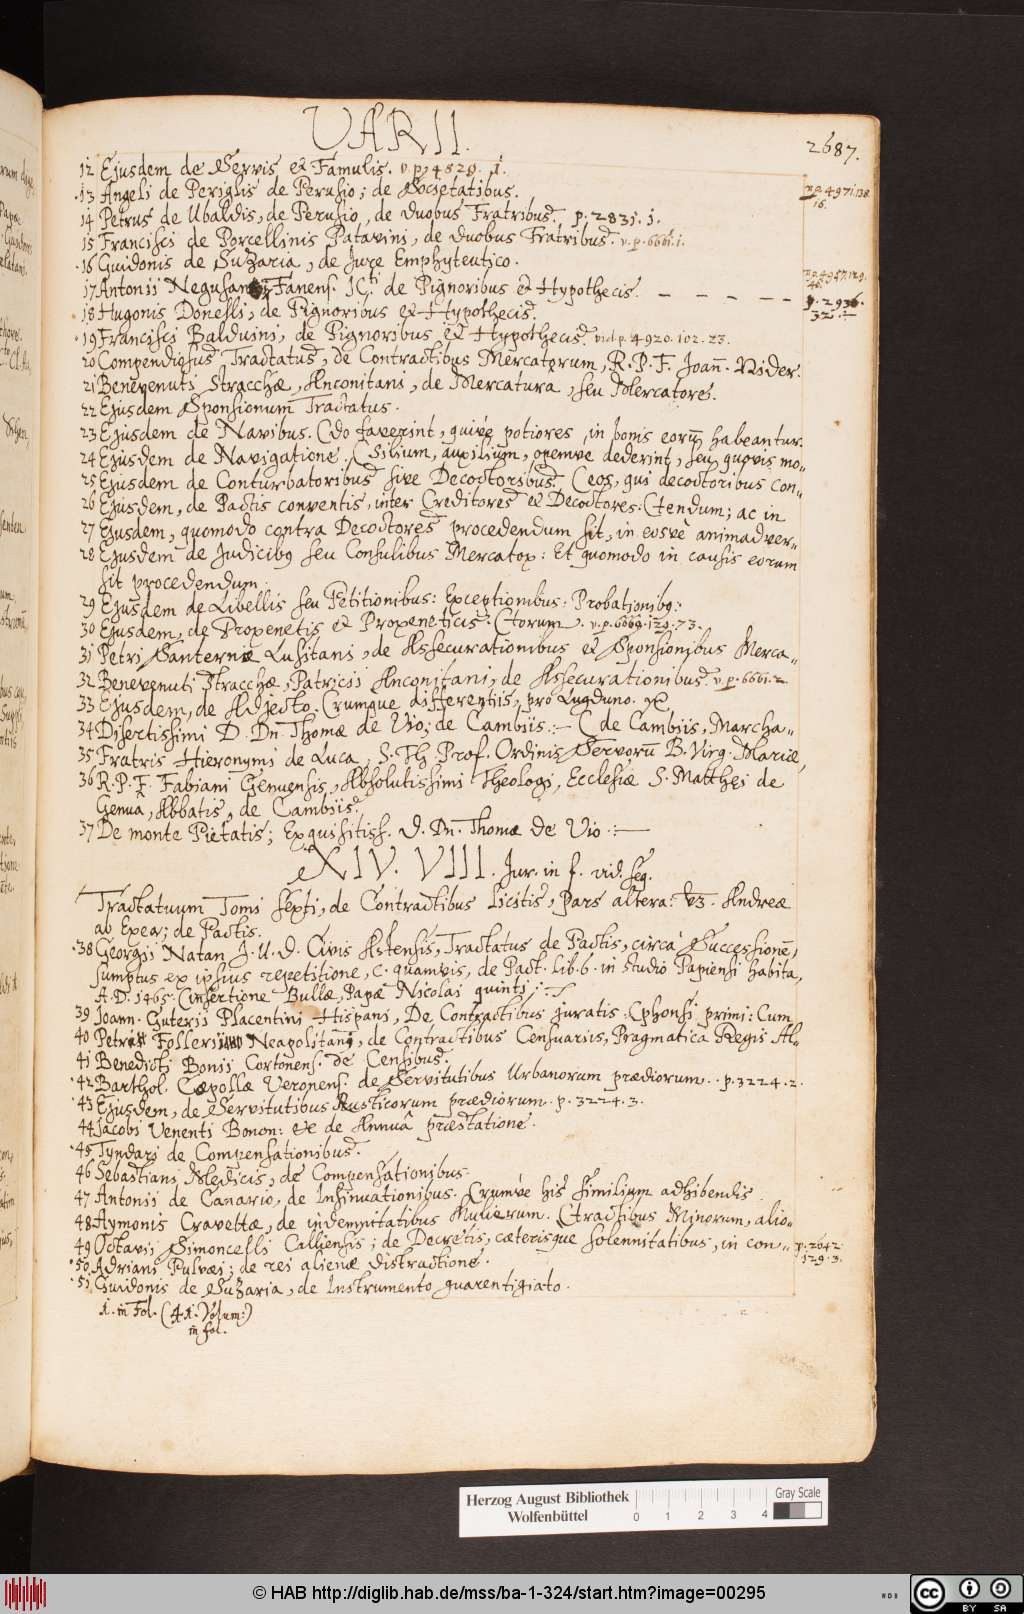 VARII.
2687.
12 Ejusdem de Servis et Famulis. v. p. 4829. 1.
13 Angeli de Periglis de Perusio; de Societatibus.
14 Petrus de Ubaldis, de Perusio, de duobus Fratribus. p. 2831. 1.
15 Francisci de Porcellinis Patavini, de duobus Fratribus. v. p. 6661. 1.
16 Guidonis de Suzaria, de Jure Emphyteutico.
17 Antonii Fanens. JCti de Pignoribus et Hypothecis. p. 2936.
321.
18 Hugonis Donelli, de Pignoribus et Hypothecis.
19 Francisci Balduini, de Pignoribus et Hypothecis. vid. p. 4920. 102. 23.
20 Compendiosus Tractatus, de Contractibus Mercatorum, R. P. F. Joann. Nider.
21 Benevenuti Stracchæ, Anconitani, de Mercatura, seu Mercatore.
22 Ejusdem Sponsionum Tractatus.
23 Ejusdem de Navibus. (do faverint, quive potiores in bonis eorum habeantur.
24 Ejusdem de Navigatione. (silium, auxilium, opemve dederint, seu quovis mo-
25 Ejusdem de Conturbatoribus sive Decoctoribus. (eos, qui decoctoribus con-
26 Ejusdem, de Pactis conventis, inter Creditores et Decoctores: (tendum; ac in
27 Ejusdem, quomodo contra Decoctores procedendum sit, in eosve animadver-
28 Ejusdem de Judicibus seu Consulibus Mercator: Et quomodo in causis eorum
sit procedendum.
29 Ejusdem de Libellis seu Petitionibus: Exceptionibus: Probationibq:
30 Ejusdem, de Proxenetis et Proxeneticis. (torum. v. p. 6669. 129. 73.
31 Petri Santernæ Lusitani, de Assecurationibus et Sponsionibus Merca-
32 Benevenuti Stracchæ, Patricii Anconitani, de Assecurationibus. v. p. 6661. 2.
33 Ejusdem, de Adjecto. (rumque differentiis, pro Lugduno.
34 Disertissimi D. Dn. Thomæ de Vio; de Cambiis. (de Cambiis, Marcha-
35 Fratris Hieronymi de Luca, S. Th. Prof. Ordinis Servorum B. Virg. Mariæ,
36 R. P. F. Fabiani Genuensis, Absolutissimi Theologi, Ecclesiæ S. Matthei de
Genua, Abbatis, de Cambiis.
37 De monte Pietatis; Exquisitiss. D. Dn. Thomæ de Vio.
XIV. VIII. Jur. in f. vid. seq.
Tractatuum Tomi septi, de Contractibus Licitis, Pars altera: Andreæ
ab Exea; de Pactis.
38 Georgii Natan J. U. D. Civis Astensis, Tractatus de Pactis, circa Successione,
sumptus ex ipsius repetitione, c. quamvis, de Pact. Lib. 6. in studio Papiensi habita,
A. D. 1465. (insertione Bullæ, Papæ Nicolai quinti;
39 Joann. Guterii Placentini Hispani, De Contractibus juratis. (phonsi primi: Cum
40 Petri Follerii Neapolitani, de Contractibus Censuariis, Pragmatica Regis Al-
41 Benedicti Bonii Cortonens. de Censibus.
42 Barthol. Cæpollæ Veronens. de Servitutibus Urbanorum prædiorum. p. 3224. 2.
43 Ejusdem, de Servitutibus Rusticorum prædiorum. p. 3224. 3.
44 Jacobi Venenti Bonon: de Annua præstatione.
45 Tyndari de Compensationibus.
46 Sebastiani Medicis, de Compensationibus.
47 Antonii de Canario, de Insinuationibus. (rumve his similium adhibendis
48 Aymonis Cravettæ, de indemnitatibus Mulierum. (tractibus Minorum, alio-
49 Octavii Simoncelli Calliensis; de Decretis, cæterisque solennitatibus, in con- p. 2642
129. 3.
50 Adriani Pulvæi; de rei alienæ distractione.
51 Guidonis de Suzaria, de Instrumento guarentigiato.
1. in Fol. (A 1. Volum:)
in fol.
Herzog August Bibliothek
Wolfenbüttel
0 1 2 3 4
Gray Scale
© HAB http://diglib.hab.de/mss/ba-1-324/start.htm?image=00295
cc BY SA